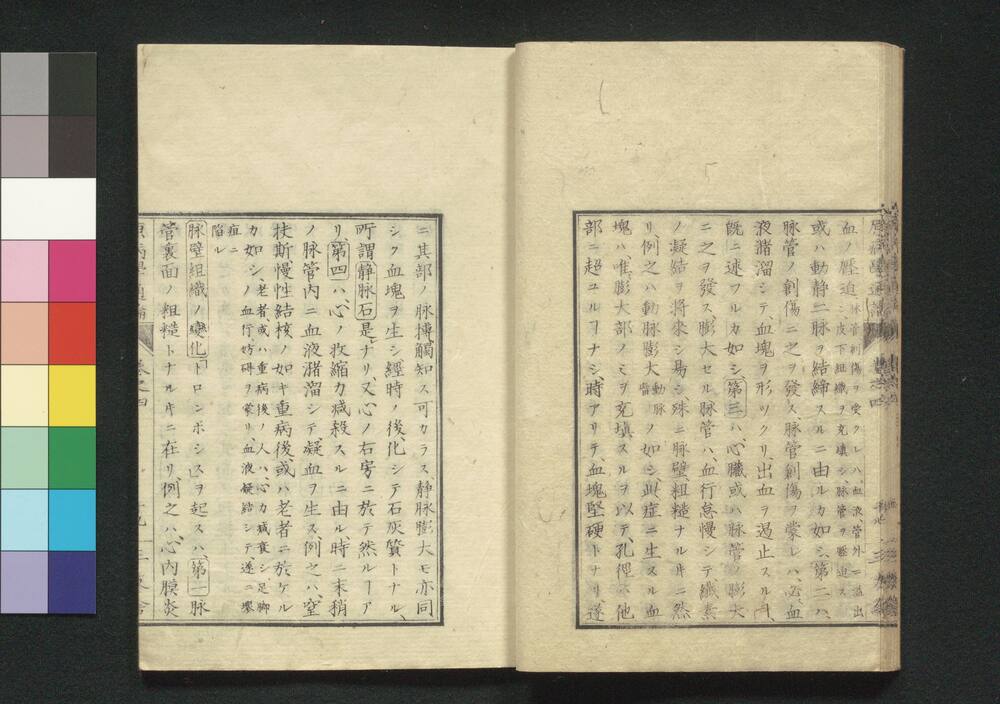 血ノ壓迫ニ脉管創傷ヲ受クレハ、血液管外ニ溢出
シ皮下組織ヲ充塡シ、脉管ヲ壓迫ス
或ハ動静二脉ヲ結締スルニ由ルカ如シ、第二ハ、
脉管ノ創傷ニ之ヲ發ス脉管創傷ヲ蒙レハ、必血
液瀦溜シテ、血塊ヲ形ツクリ、出血ヲ遏止スルヿ、
既ニ述フルカ如シ、第三ハ、心臓或ハ脉管ノ膨大
ニ之ヲ發ス、膨大セル脉管ハ、血行怠慢シテ纎素
ノ凝結ヲ將來シ易シ、殊ニ脉壁粗糙ナルキニ然
リ、例之ハ動脉膨大動脉瘤ノ如シ、此症ニ生スル血
塊ハ、唯膨大部ノミヲ充塡スルヲ以テ、孔徑ハ他
部ニ超ユルヿナシ、時アリテ、血塊堅硬トナリ遂
ニ其部ノ脉搏觸知ス可カラス、静脉膨大モ亦同
シク血塊ヲ生シ經時ノ後、化シテ石灰質トナル、
所謂静脉石是ナリ、又心ノ右房ニ於テ然ルヿア
リ第四ハ、心ノ收縮力減殺スルニ由ル時ニ末稍
ノ脉管内ニ血液瀦溜シテ凝血ヲ生ス、例之ハ、窒
扶斯慢性結核ノ如キ重病後、或ハ老者ニ於ケル
カ如シ、老者、或ハ重病後ノ人ハ、心力減衰シ足脚
ノ血行妨碍ヲ蒙リ、血液凝結シテ、遂ニ壞
疽ニ
陥ル
脉壁組織ノ變化トロンボシスヲ起スハ、第一脉
管裏面ノ粗糙トナルキニ在リ、例之ハ心内膜炎